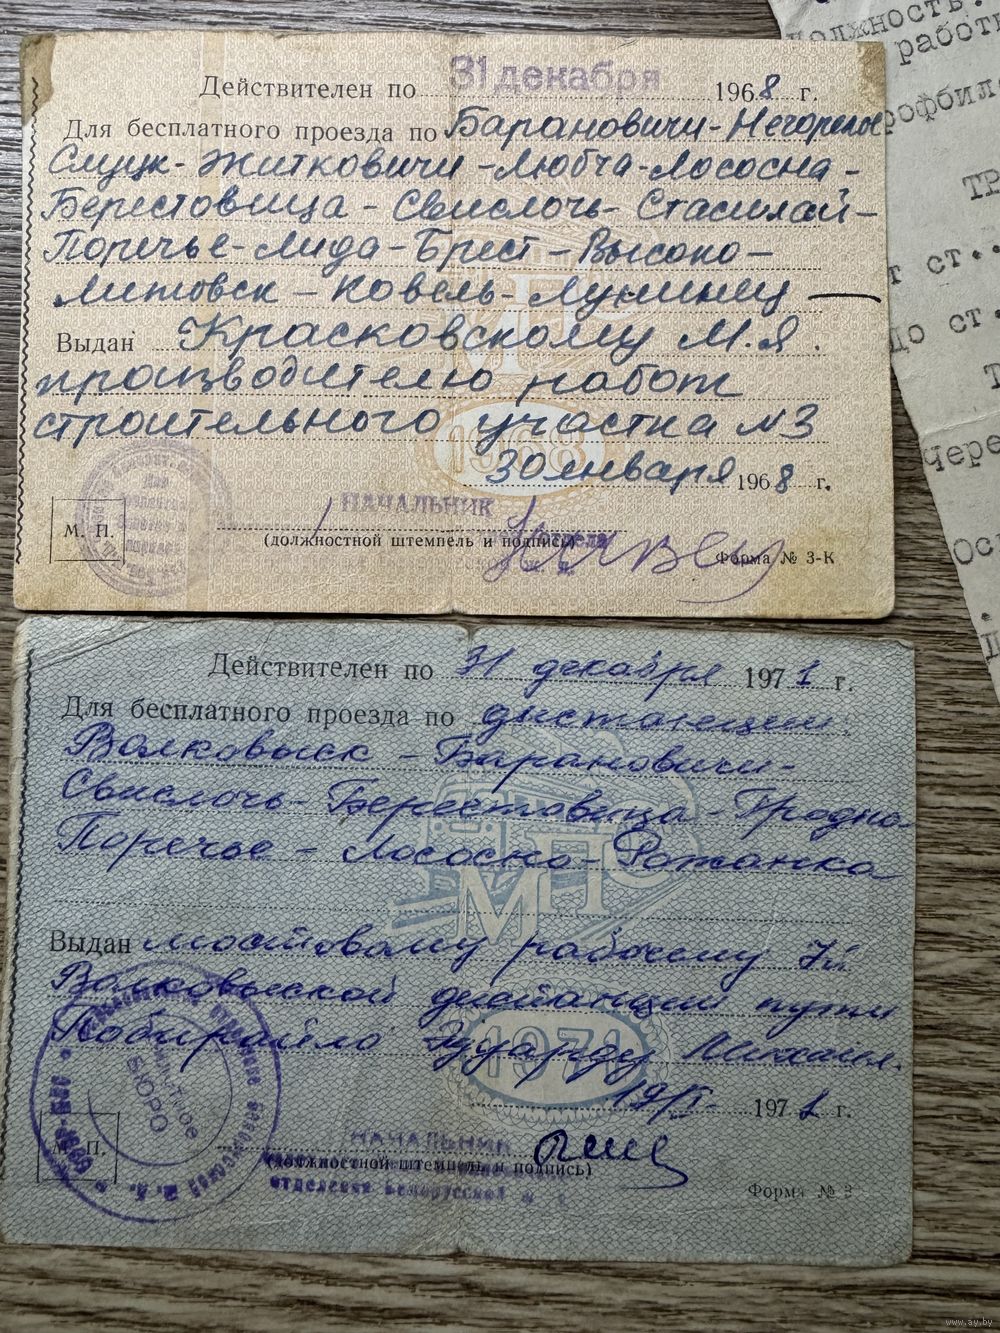 Действителен по 31 декабря 1968 г.
Для бесплатного проезда по Барановичи - Негорелое
Слуцк - Житковичи - Любча - Лососна -
Берестовица - Свислочь - Стасилай -
Поречье - Лида - Брест - Высоко -
Литовск - Ковель - Лунинец —
Выдан Красковскому М.Я.
производителю работ
строительного участка №3
30 января 1968 г.
НАЧАЛЬНИК
М. П.
(должностной штемпель и подпись)
Форма № 3-К
МПС
1968
Действителен по 31 декабря 1971 г.
Для бесплатного проезда по дистанции
Волковыск - Барановичи -
Свислочь - Берестовица - Гродно
Поречье - Лососно - Рожанка
МПС
Выдан мостовому рабочему 7й
Волковыской дистанции пути
Побирайло Эдуарду Михайл.
1971
19/I 1971 г.
БЮРО
М. П.
НАЧАЛЬНИК
(должностной штемпель и подпись)
отделения Белорусской ж. д.
Форма № 3
должность
работ
профбил
ТР
т ст...
до ст.
Т
чере
Ос
www.ay.by